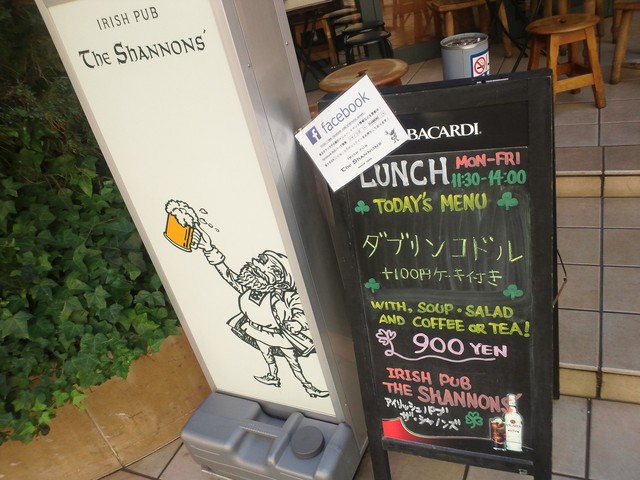 IRISH PUB
The SHANNONS'
facebook
The SHANNONS'
BACARDI
LUNCH MON-FRI
11:30-14:00
TODAY'S MENU
ダブリンコドル
+100円ケーキ付き
WITH, SOUP・SALAD
AND COFFEE OR TEA!
900 YEN
IRISH PUB
THE SHANNONS'
アイリッシュパブ
ザ・シャノンズ